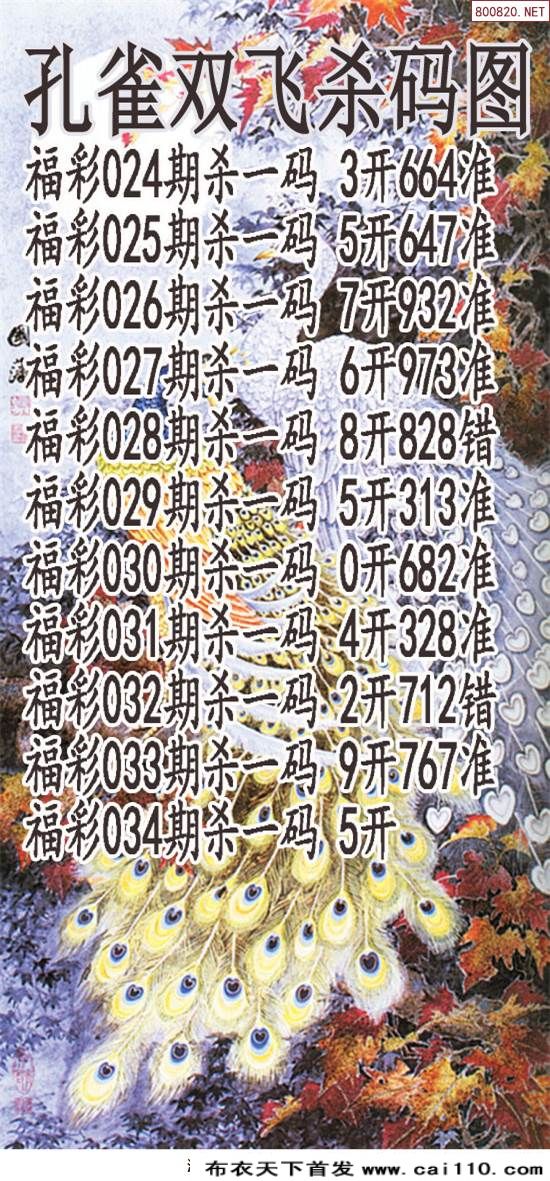 800820.NET
孔雀双飞杀码图
福彩024期杀一码 3开664准
福彩025期杀一码 5开647准
福彩026期杀一码 7开932准
福彩027期杀一码 6开973准
福彩028期杀一码 8开828错
福彩029期杀一码 5开313准
福彩030期杀一码 0开682准
福彩031期杀一码 4开328准
福彩032期杀一码 2开712错
福彩033期杀一码 9开767准
福彩034期杀一码 5开
布衣天下首发 www.cai110.com